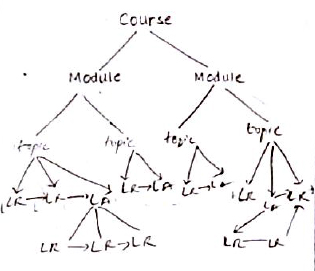 Course
Module Module
topic topic topic topic
LR LR LA LR LA LR LA LR LA LR
LR LR LR LR LR